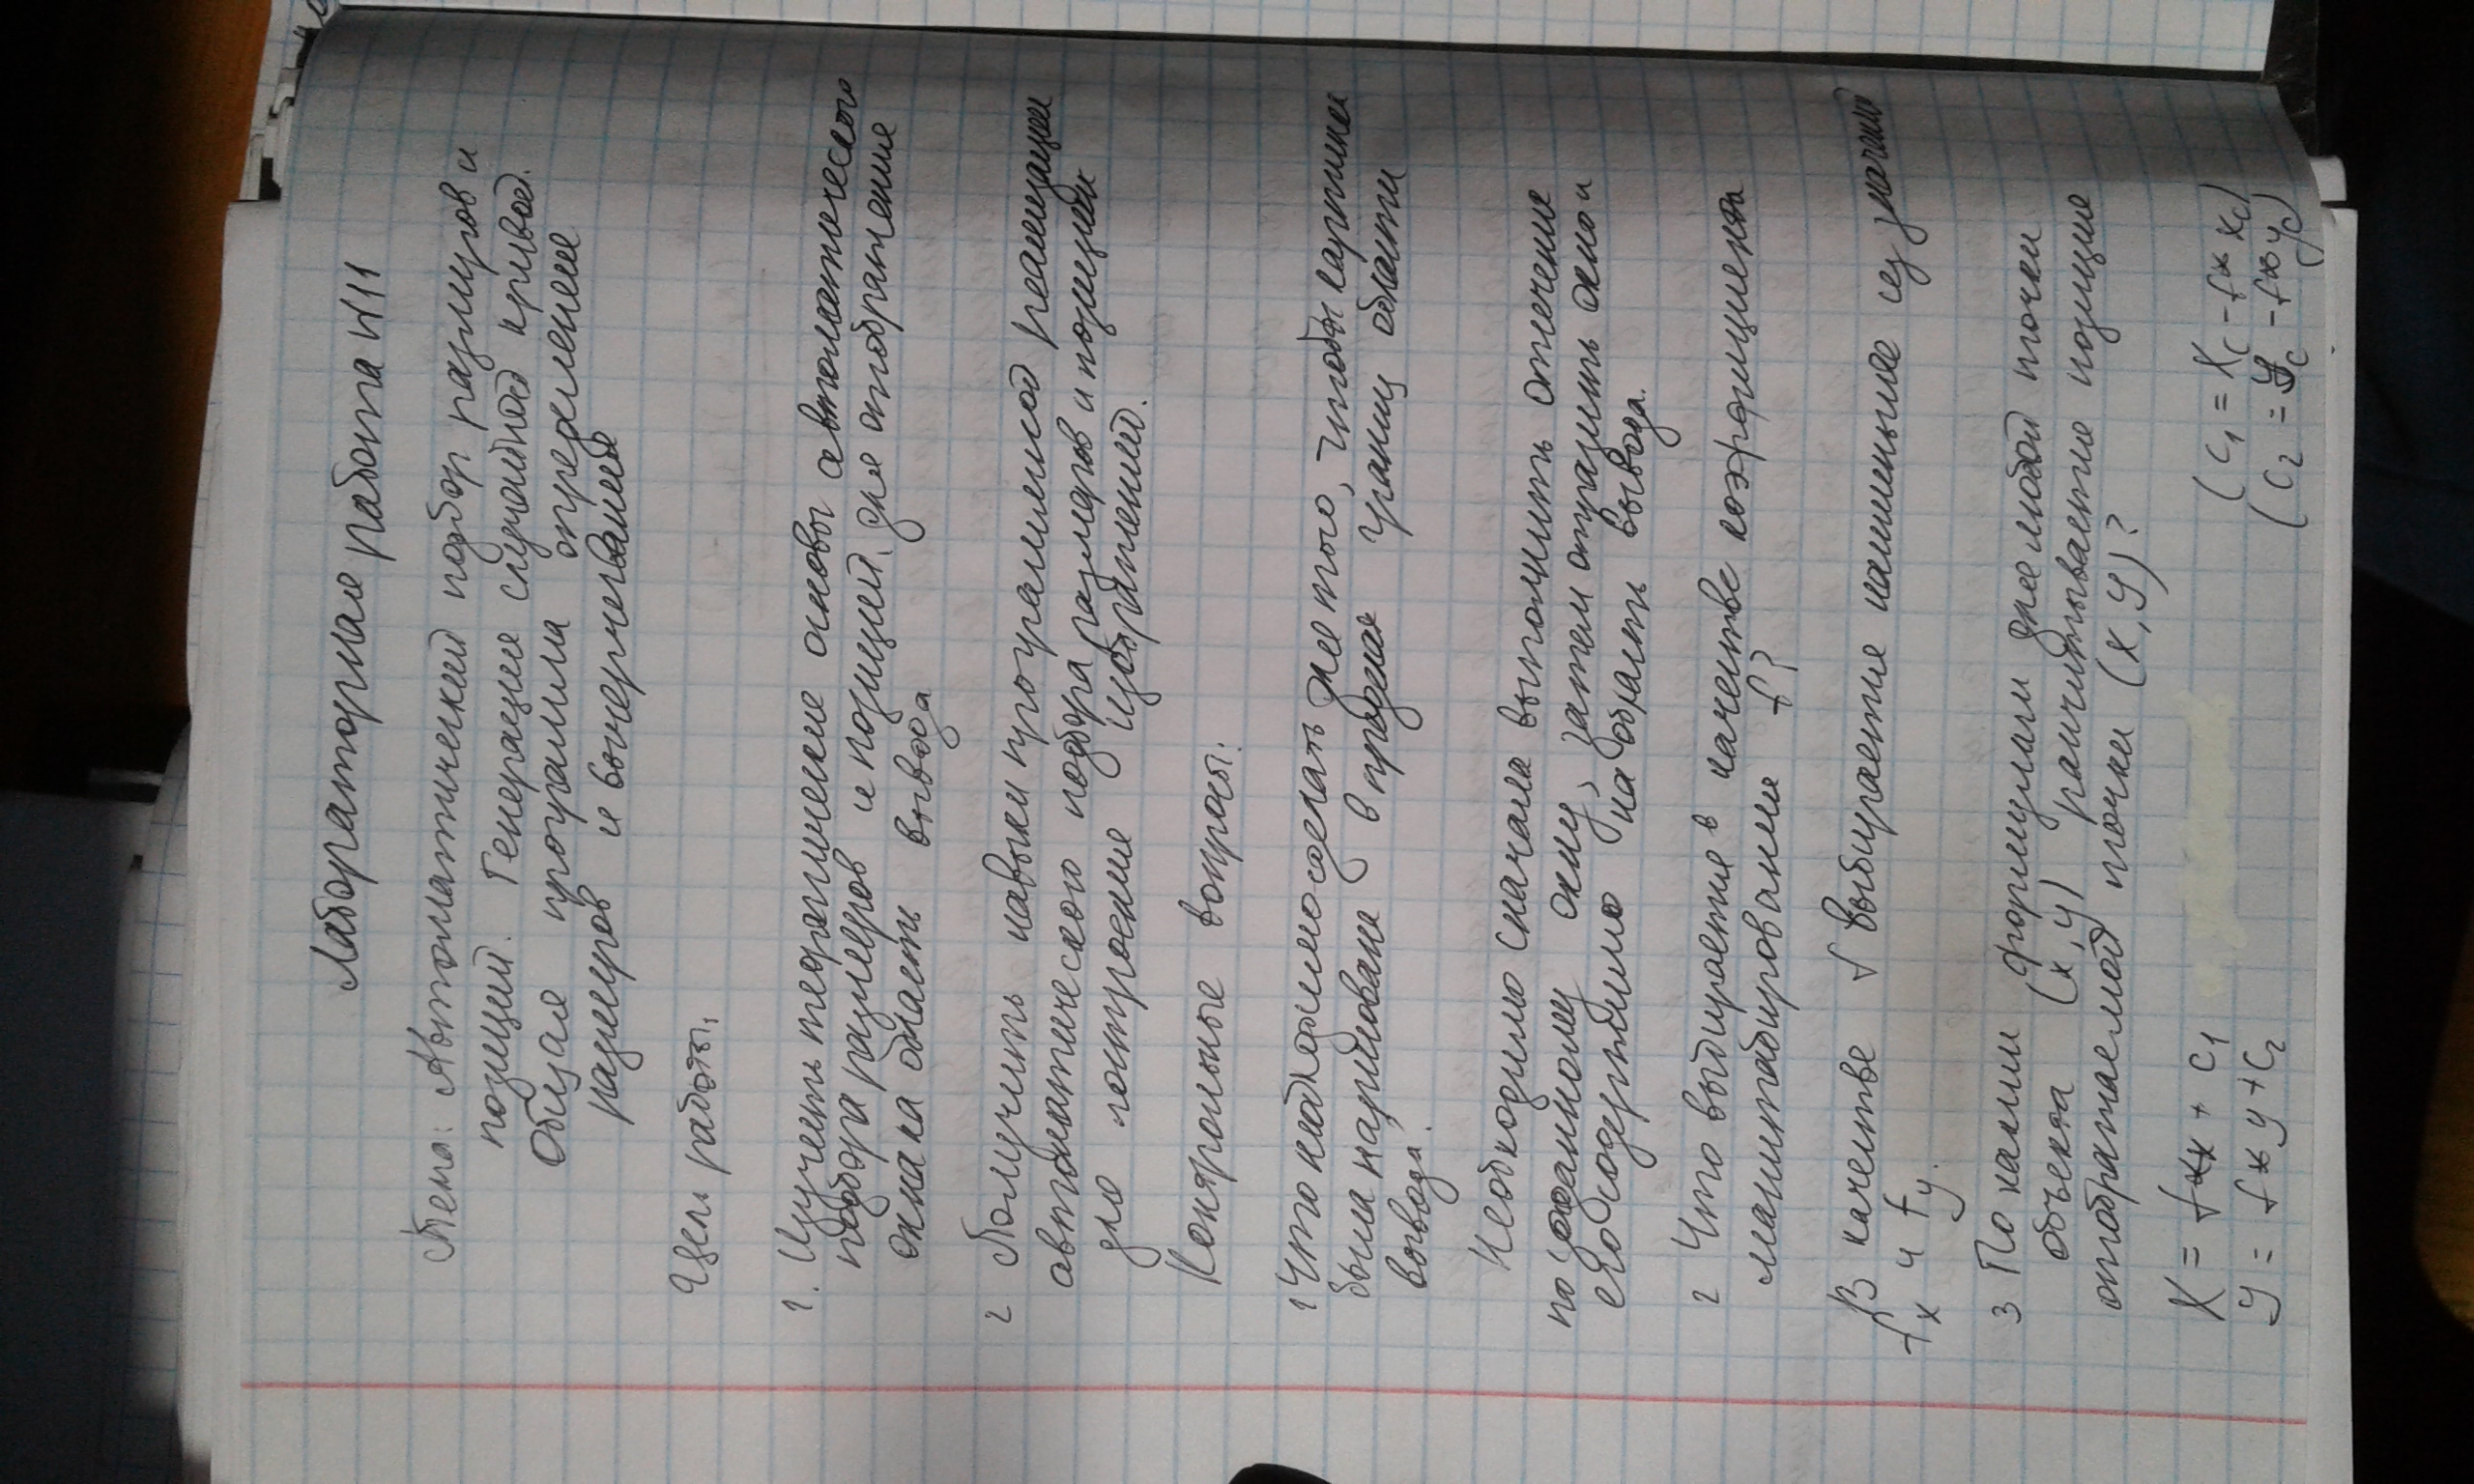 Лабораторная работа N11
Тема: Автоматический подбор размеров и
позиций. Генерация случайной кривой.
Общая программа определения
размеров и вычерчивания
Цель работы:
1. Изучить теоретические основы автоматического
подбора размеров и позиций, для отображения
окна на область вывода
2 Получить навыки программной реализации
автоматического подбора размеров и позиции
для построения изображений.
Контрольные вопросы:
1 Что необходимо сделать для того, чтобы картинка
была нарисована в пределах границ области
вывода?
Необходимо сначала выполнить отсечение
по заданному окну, затем отразить окно и
его содержимо на область вывода.
2 Что выбирается в качестве коэффициента
масштабирования f?
В качестве f выбирается наименьшее из значений
fx и fy.
3 По каким формулам для любой точки
объекта (x, y) расчитывается позиция
отображаемой точки (X, Y)?
X = f*x + c1
(c1 = Xc - f* xc)
Y = f* y + c2
(c2 = Yc - f* yc)